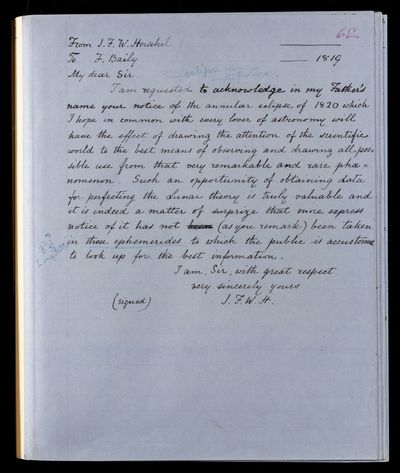 62
From J.F.W. Herschel
To F. Baily 1819
My dear Sir
eclipse
I am requested to acknowledge in my Father's
name your notice of the annular eclipse of 1820 which
I hope in common with every lover of astronomy will
have the effect of drawing the attention of the scientific
world to the best means of observing and drawing all pos=
sible use from that very remarkable and rare phæ=
nomenon. Such an opportunity of obtaining data
for perfecting the Lunar theory is truly valuable and
it is indeed a matter of surprize that more express
notice of it has not been (as you remark) been taken
in those ephemerides to which the public is accustomed
to look up for the best information.
I am, Sir, with great respect
very sincerely yours
(signed) J.F.W.H.